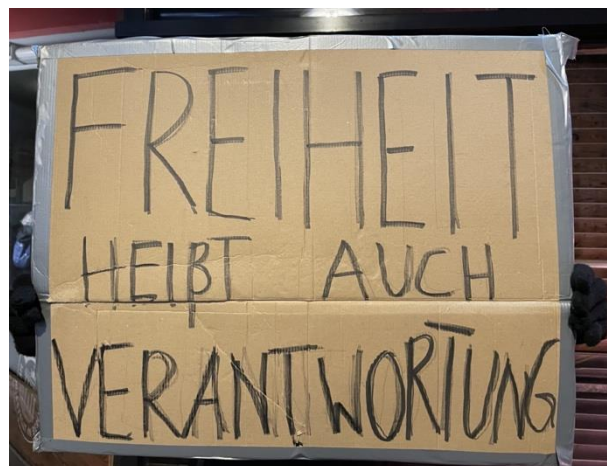 FREIHEIT
HEIßT AUCH
VERANTWORTUNG